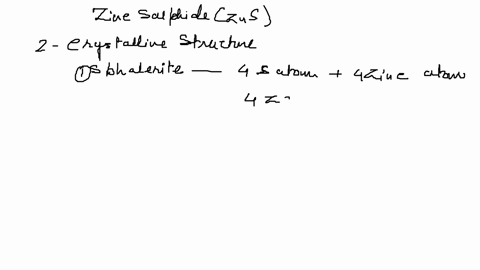 Zinc Sulphide (ZnS)
2 - Crystalline Structure
① Sphalerite — 4 S atom + 4 Zinc atom
4 Z